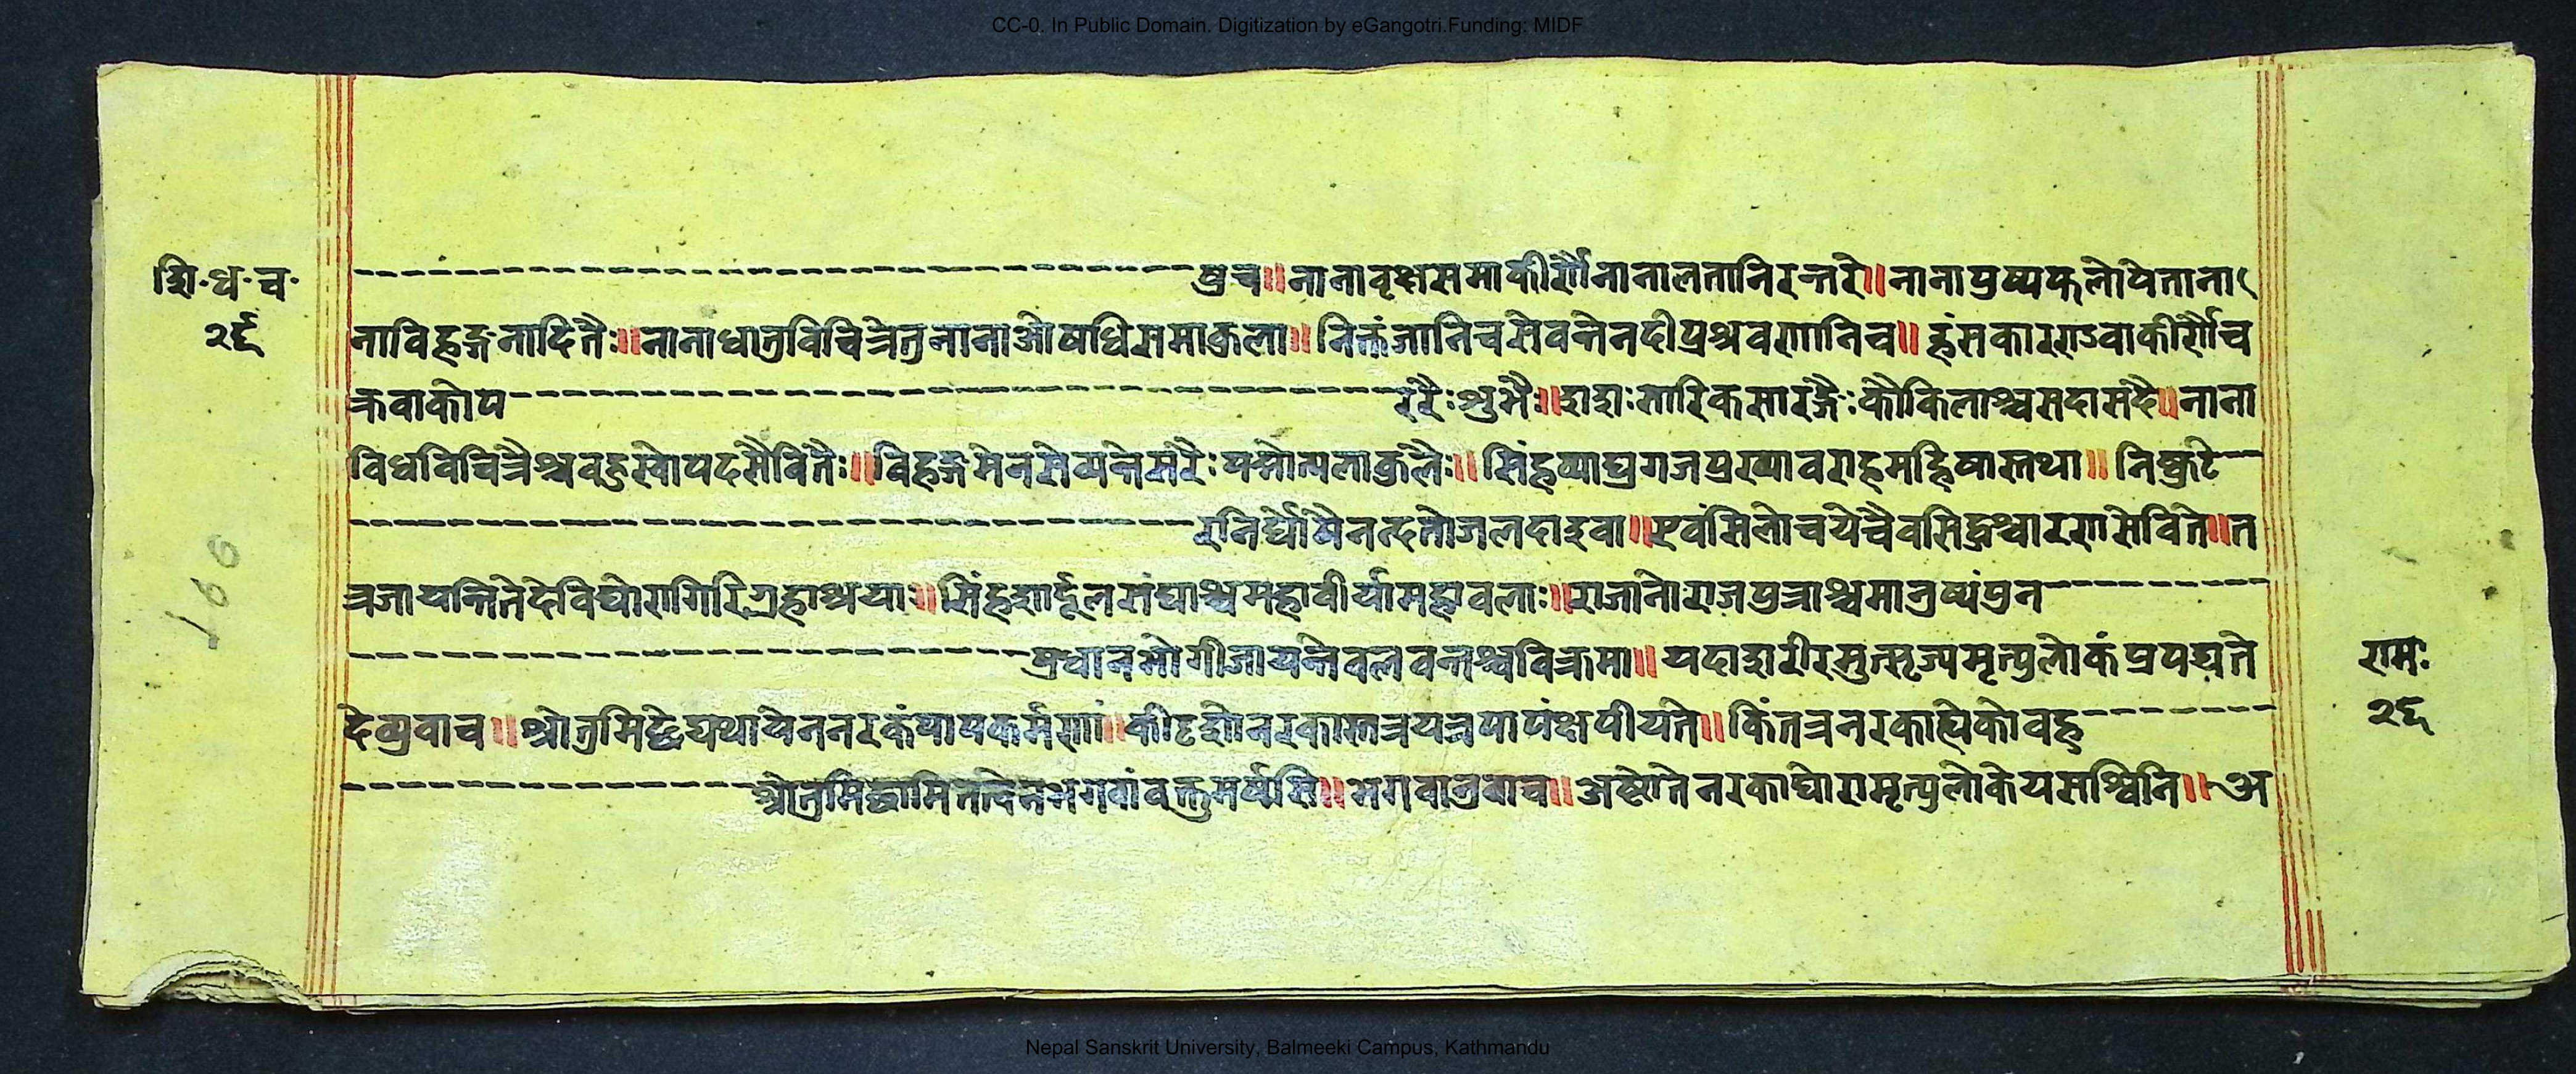 CC-0. In Public Domain. Digitization by eGangotri.Funding: MIDF
शि॰ध॰च॰
२६
---------- षुच॥नानावृक्षसमाकीर्णौनानालतानिरन्तरे॥नानापुष्पफलोपेताना
नाविहङ्गनादितैः॥नानाधातुविचित्रेतुनानाओषधिसमाकुला॥निकुंजानिचसेवन्तेनदीप्रश्रवणानिच॥हंसकारण्डवाकीर्णौच
क्रवाकोप ---------- ररैःशुभैः॥ सारिकसारङ्गैःकोकिलाश्चसदासदै॥नाना
विधविचित्रैश्चवहुस्वोपदसेवितैः॥विहङ्गमेनसेव्यन्तेसरैःपद्मोत्पलाकुलैः॥सिंहव्याघ्रगजप्रख्यावराहमहिषास्तथा॥ ----------
---------- रनिर्घोषैनन्दतोजलदाइवा॥एवंसिलोचयेचैवसिद्धश्चारणसेविते॥त
त्रजायन्तितेदेविघोरागिरिगुहाश्रयाः॥सिंहशार्दूलसंघाश्चमहावीर्यामहावलाः॥राजानोराजपुत्राश्चमानुष्यंपुन ----------
---------- प्रधानभोगीजायन्तेवलवन्तश्चविक्रमा॥यदाशरीरमुत्सृज्यमृत्युलोकंप्रपद्यते
देव्युवाच॥श्रोतुमिछेद्यथायेननरकंपापकर्मणां॥कीदृशोनरकास्तत्रयत्रपापंक्षपीयते॥किंतत्रनरकाह्येकोवहु ----------
---------- श्रोतुमिछामितत्वेनभगवांवक्तुमर्ष्यसि॥भगवानुवाच॥अष्टौतेनरकाघोरामृत्युलोकेयसश्विनि॥अ
रामः
२६
100
Nepal Sanskrit University, Balmeeki Campus, Kathmandu